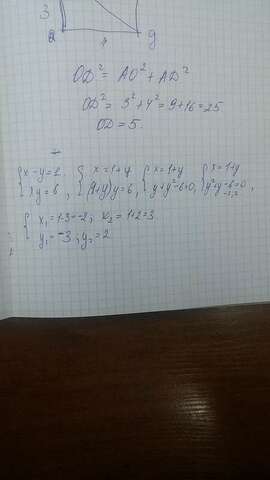 3
4
OD² = AO² + AD²
OD² = 3² + 4² = 9 + 16 = 25
OD = 5.
{x - y = 1, {x = 1 + y {x = 1 + y {x = 1 + y
{xy = 6, {(1+y)y = 6, {y + y² - 6 = 0, {y² + y - 6 = 0,
{x₁ = 1 - 3 = -2; x₂ = 1 + 2 = 3
{y₁ = -3; y₂ = 2